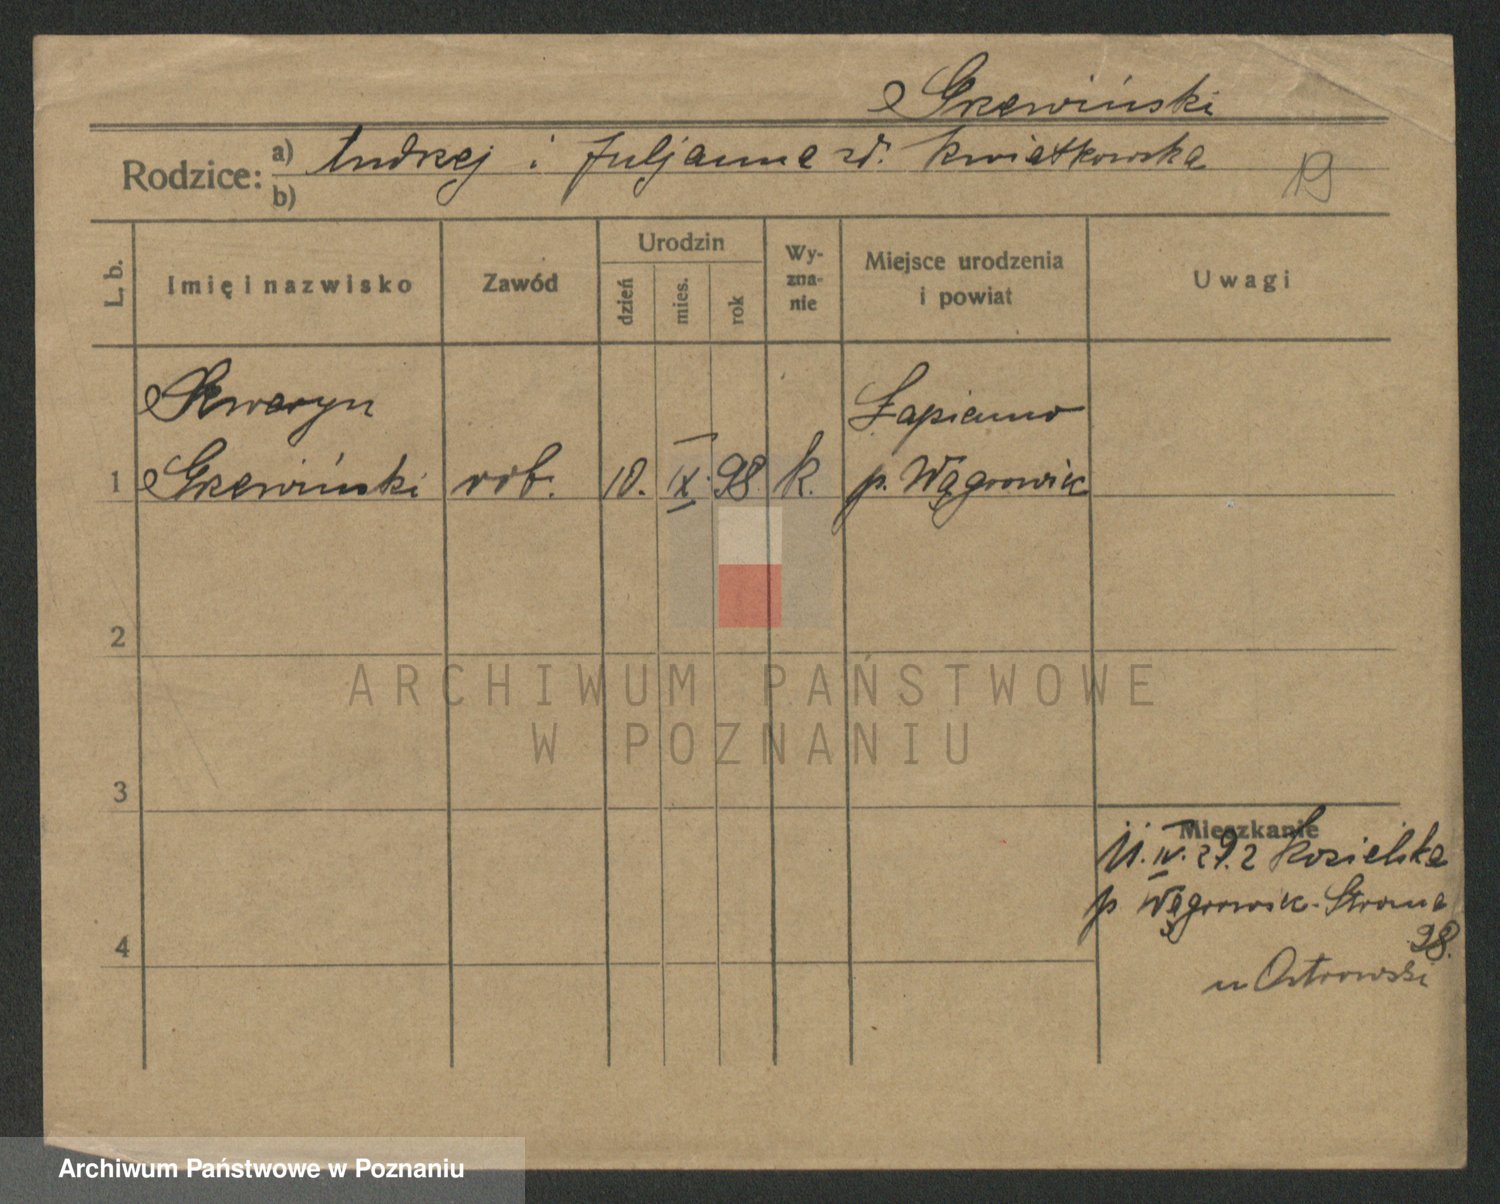 Grzewiński
Rodzice: a) Andrzej i Juljanna zd. Kwiatkowska
b)
19
L. b. Imię i nazwisko Zawód Urodzin dzień mies. rok Wyznanie Miejsce urodzenia i powiat Uwagi
Seweryn Łapienno
1 Grzewiński rob. 10. IX. 98 k. p. Wągrowiec
2
ARCHIWUM PAŃSTWOWE
W POZNANIU
3
Mieszkanie
11. IV. 29. z
p Wągrowiec - Stroma
98.
4
u Ostrowski
Archiwum Państwowe w Poznaniu